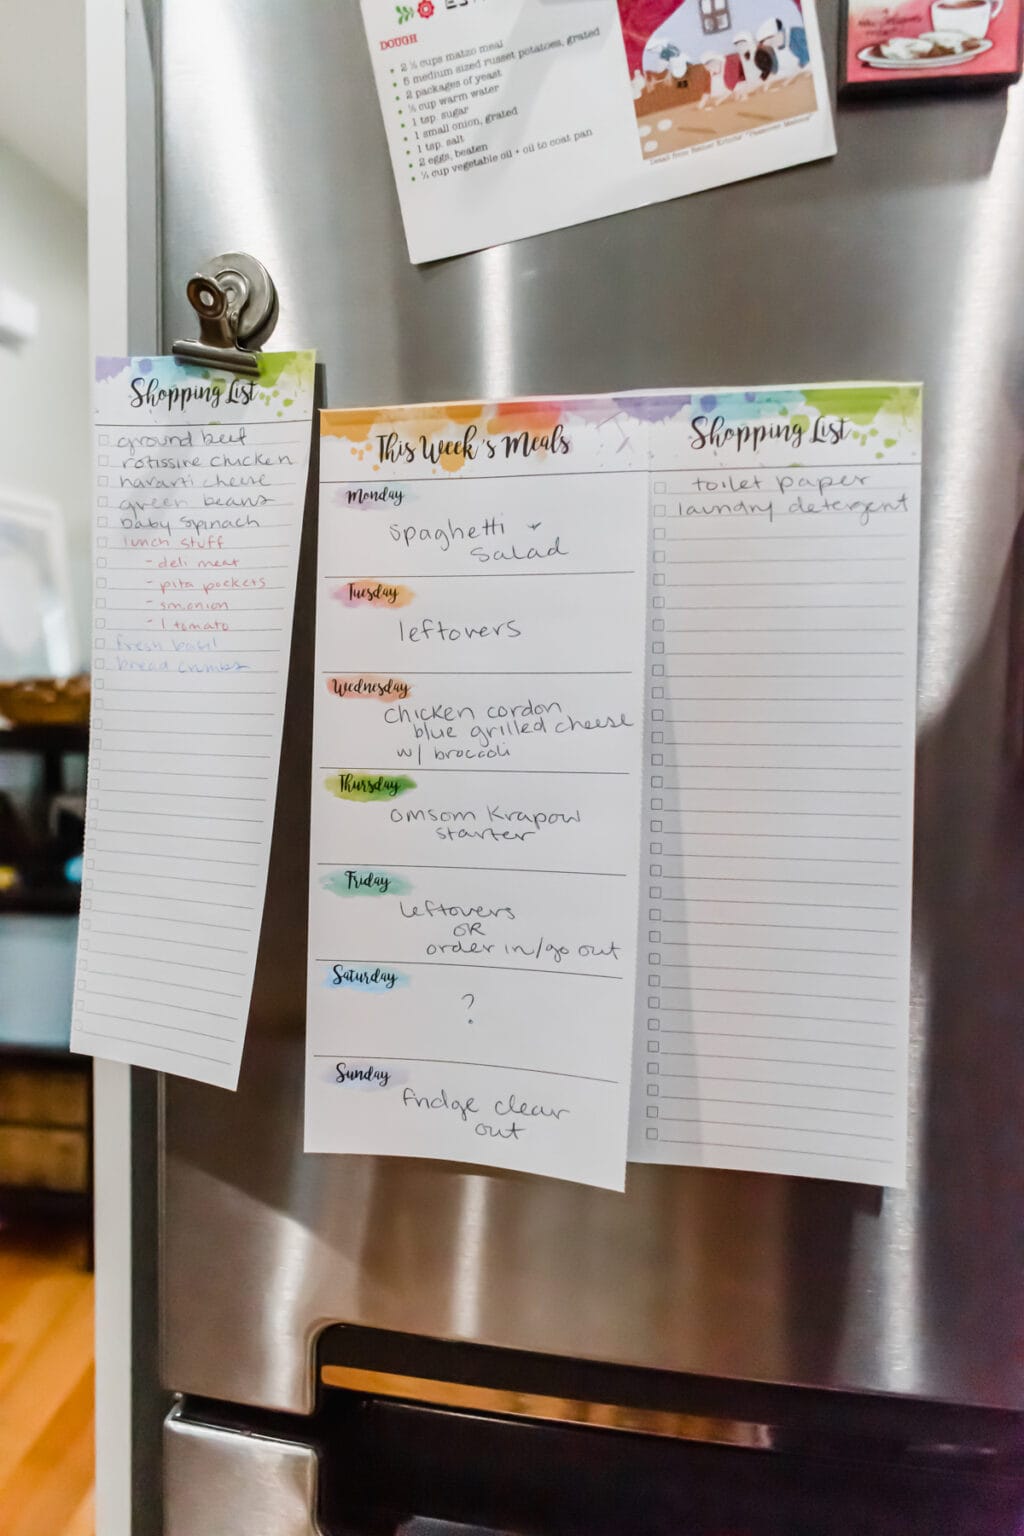 DOUGH
• 2 ½ cups matzo meal
• 6 medium sized russet potatoes, grated
• 2 packages of yeast
• ½ cup warm water
• 1 tsp. sugar
• 1 small onion, grated
• 1 tsp. salt
• 2 eggs, beaten
• ¼ cup vegetable oil + oil to coat pan
Shopping List
ground beef
rotissire chicken
havarti cheese
green beans
baby spinach
lunch stuff
- deli meat
- pita pockets
- sm onion
- 1 tomato
fresh basil
bread crumbs
This Week's Meals
Monday
spaghetti +
salad
Tuesday
leftovers
Wednesday
chicken cordon
blue grilled cheese
w/ broccoli
Thursday
omsom Krapow
starter
Friday
leftovers
OR
order in/go out
Saturday
?
Sunday
fridge clear
out
Shopping List
toilet paper
laundry detergent